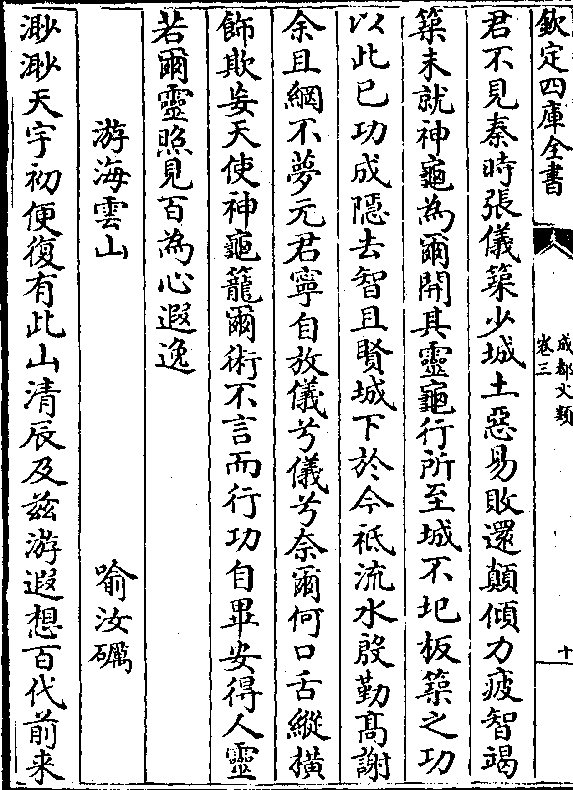 欽定四庫全書
成都文類
卷三
十
君不見秦時張儀築少城土惡易敗還顛傾力疲智竭
築未就神龜為爾開其靈龜行所至城不圮板築之功
以此已功成隱去智且賢城下於今祗流水殷勤髙謝
余且網不夢元君寧自放儀兮儀兮奈爾何口舌縱橫
飾欺妄天使神龜籠爾術不言而行功自畢安得人靈
若爾靈照見百為心遐逸
游海雲山
喻汝礪
渺渺天宇初便復有此山清辰及兹游遐想百代前来